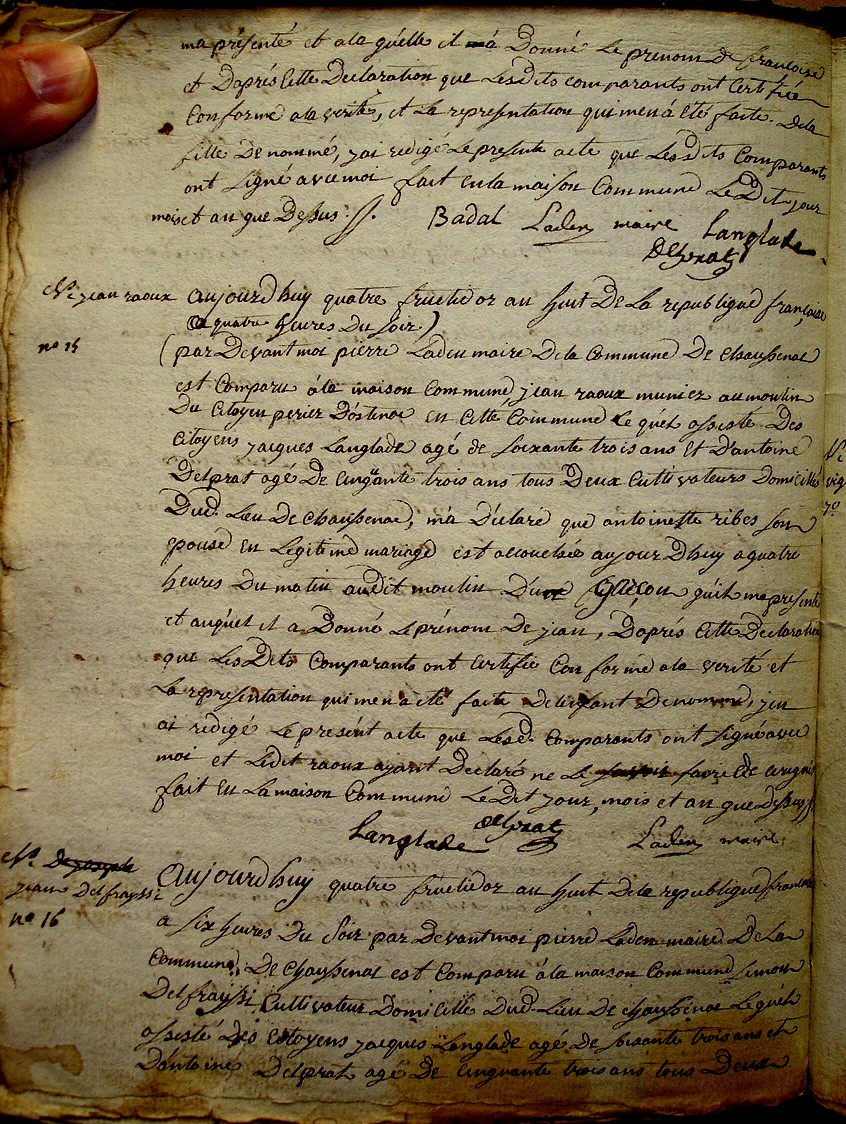 ma présenté et a la quelle il a Donné Le prenom De francoise
et Daprés Cette Declaration que Lesdits comparants ont Certifiée
Conforme a la verité, et La representation qui men á Eté faite. De la
fille Denommé, jai redigé Le presente acte que Lesdits Comparants
ont signé avec moi fait en la maison Commune Le Dit jour
mois et an que Dessus.
Badal Laden maire Langlade
Delprat
Nce jean raoux
no 15
aujourdhuy quatre fructidor an huit De La republique française
a quatre heures Du soir)
(par Devant moi pierre Laden maire De la Commune De Chaussenac
est Comparu á la maison Commune jean raoux munier au moulin
Du Citoyen periez Dostenac en Cette Commune Le quel assisté Des
Citoyens jacques Langlade agé de soixante trois ans et D'antoine
Delprat agé De Cinquante trois ans tous Deux Cultivateurs Domicilié
Dud. Lieu De Chaussenac, m'a Déclaré que antoinette ribes son
epouse en Legitime mariage est accouchée aujourDhuy a quatre
heures Du matin audit moulin D'un Garçon quil ma présenté
et auquel il a Donné Le prénom De jean, Daprés Cette Declaration
que LesDits Comparants ont Certifié Conforme a la verité et
La representation qui men a eté faite de lenfant Denommé, jen
ai redigé Le présent acte que Lesd. Comparants ont signé avec
moi et Ledit raoux ayant Declaré ne Le savoir faire De ce requis
fait en La maison Commune Le Dit jour, mois et an que Dessus
Langlade Delprat Laden maire
Nce
jean Delfrayssi
no 16
aujourdhuy quatre fructidor an huit De la republique francaise
a six heures Du soir par Devant moi pierre Laden maire De La
Commune De Chaussenac est Comparu á la maison Commune
Delfrayssi Cultivateur Domicilié Dud. Lieu De Chaussenac Lequel
assisté Des Citoyens jacques Langlade agé De soisante trois ans et
Dantoine Delprat agé De Cinquante trois ans tous Deux